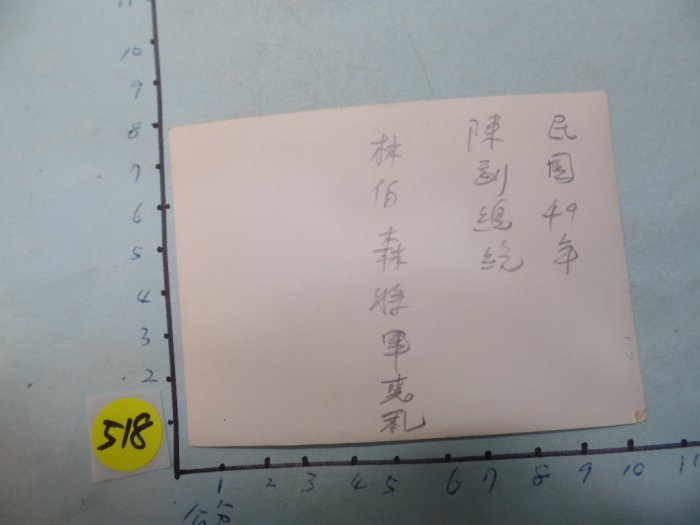 民國49年
陳副總統
林伯森將軍喪礼
11
10
9
8
7
6
5
4
3
2
518
1 2 3 4 5 6 7 8 9 10 11
公分